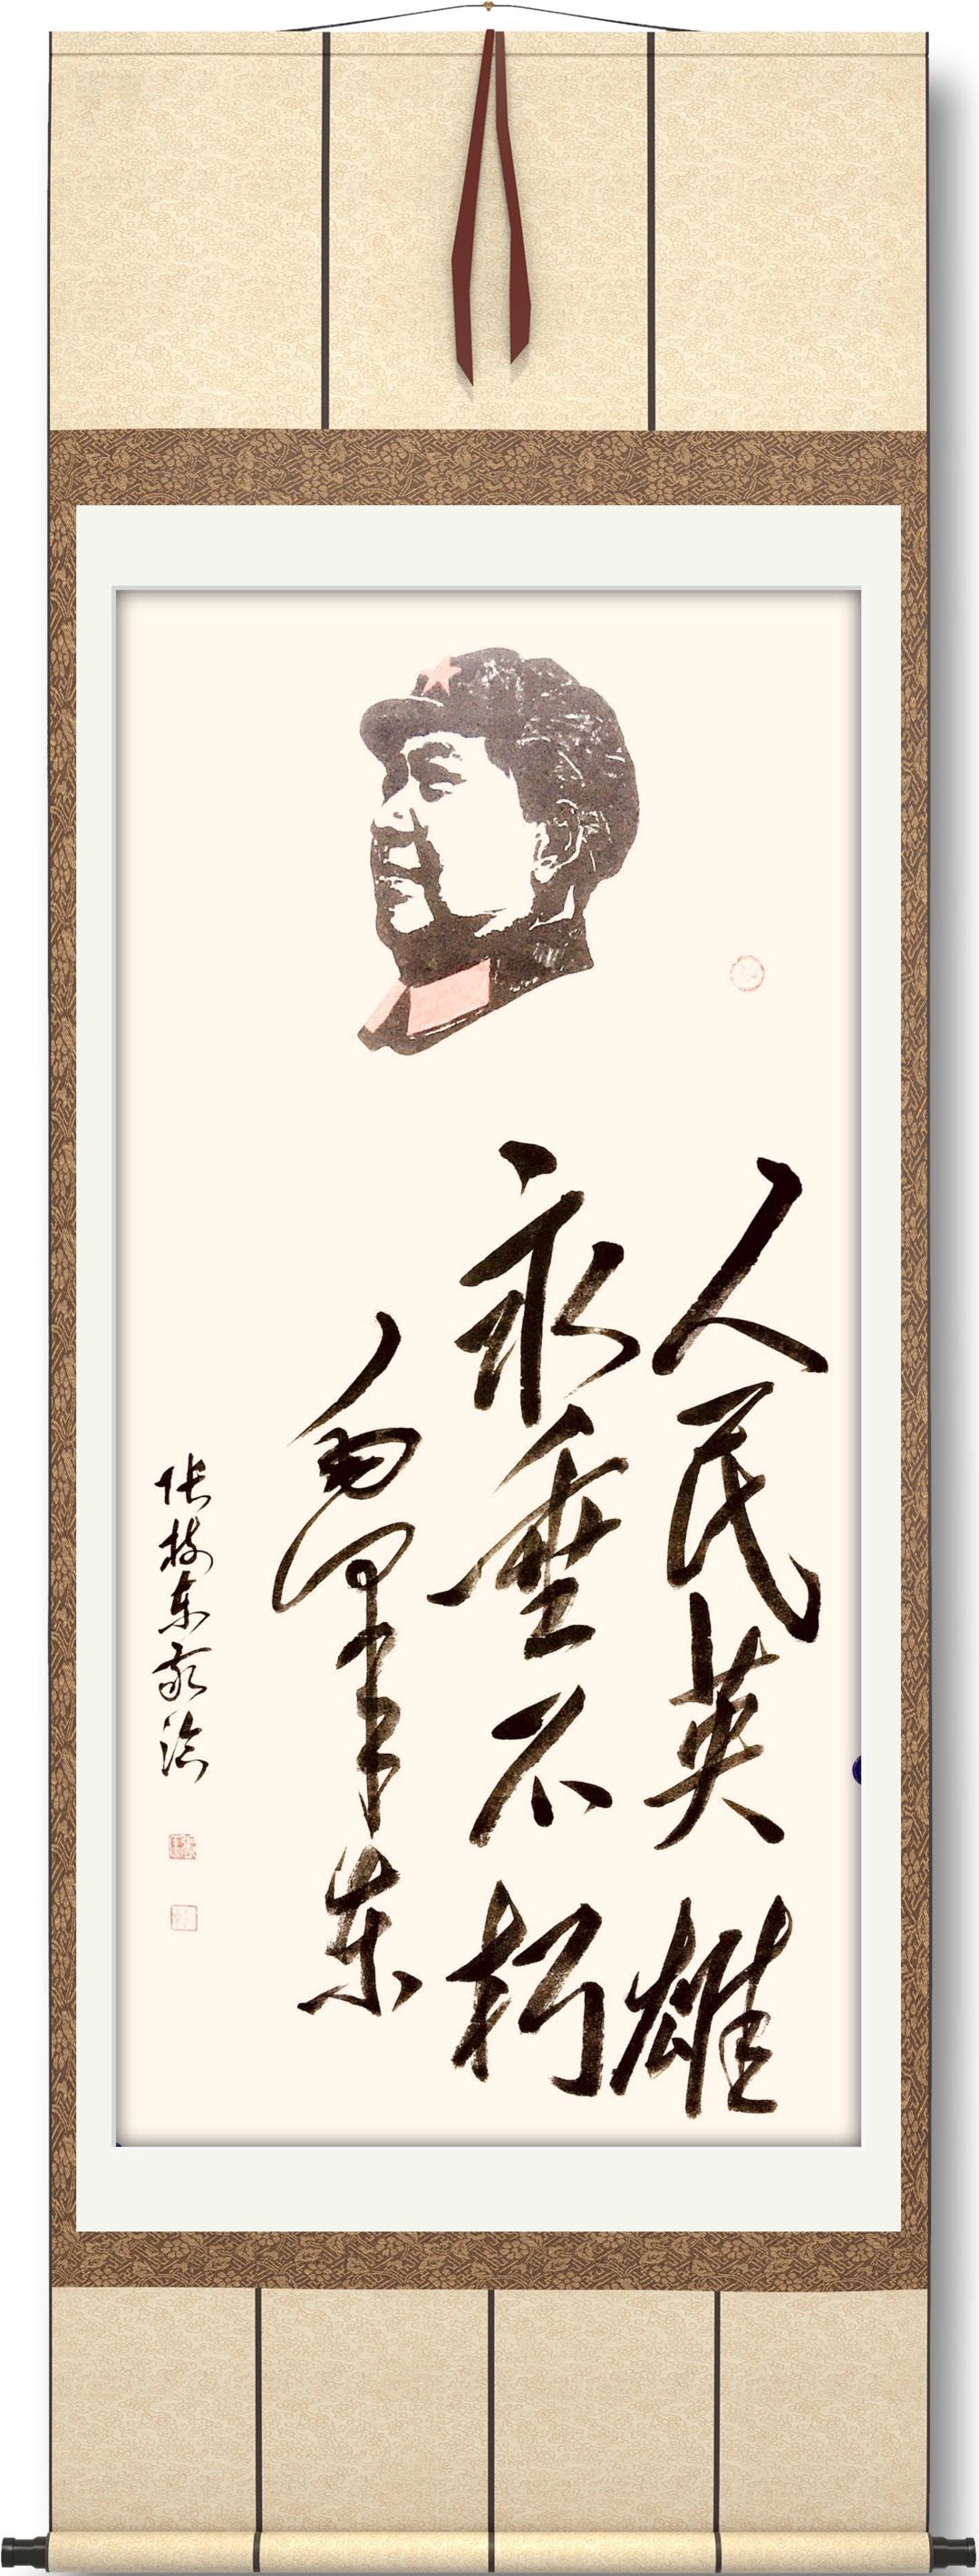 人民英雄
永垂不朽
毛泽东
张树东敬绘